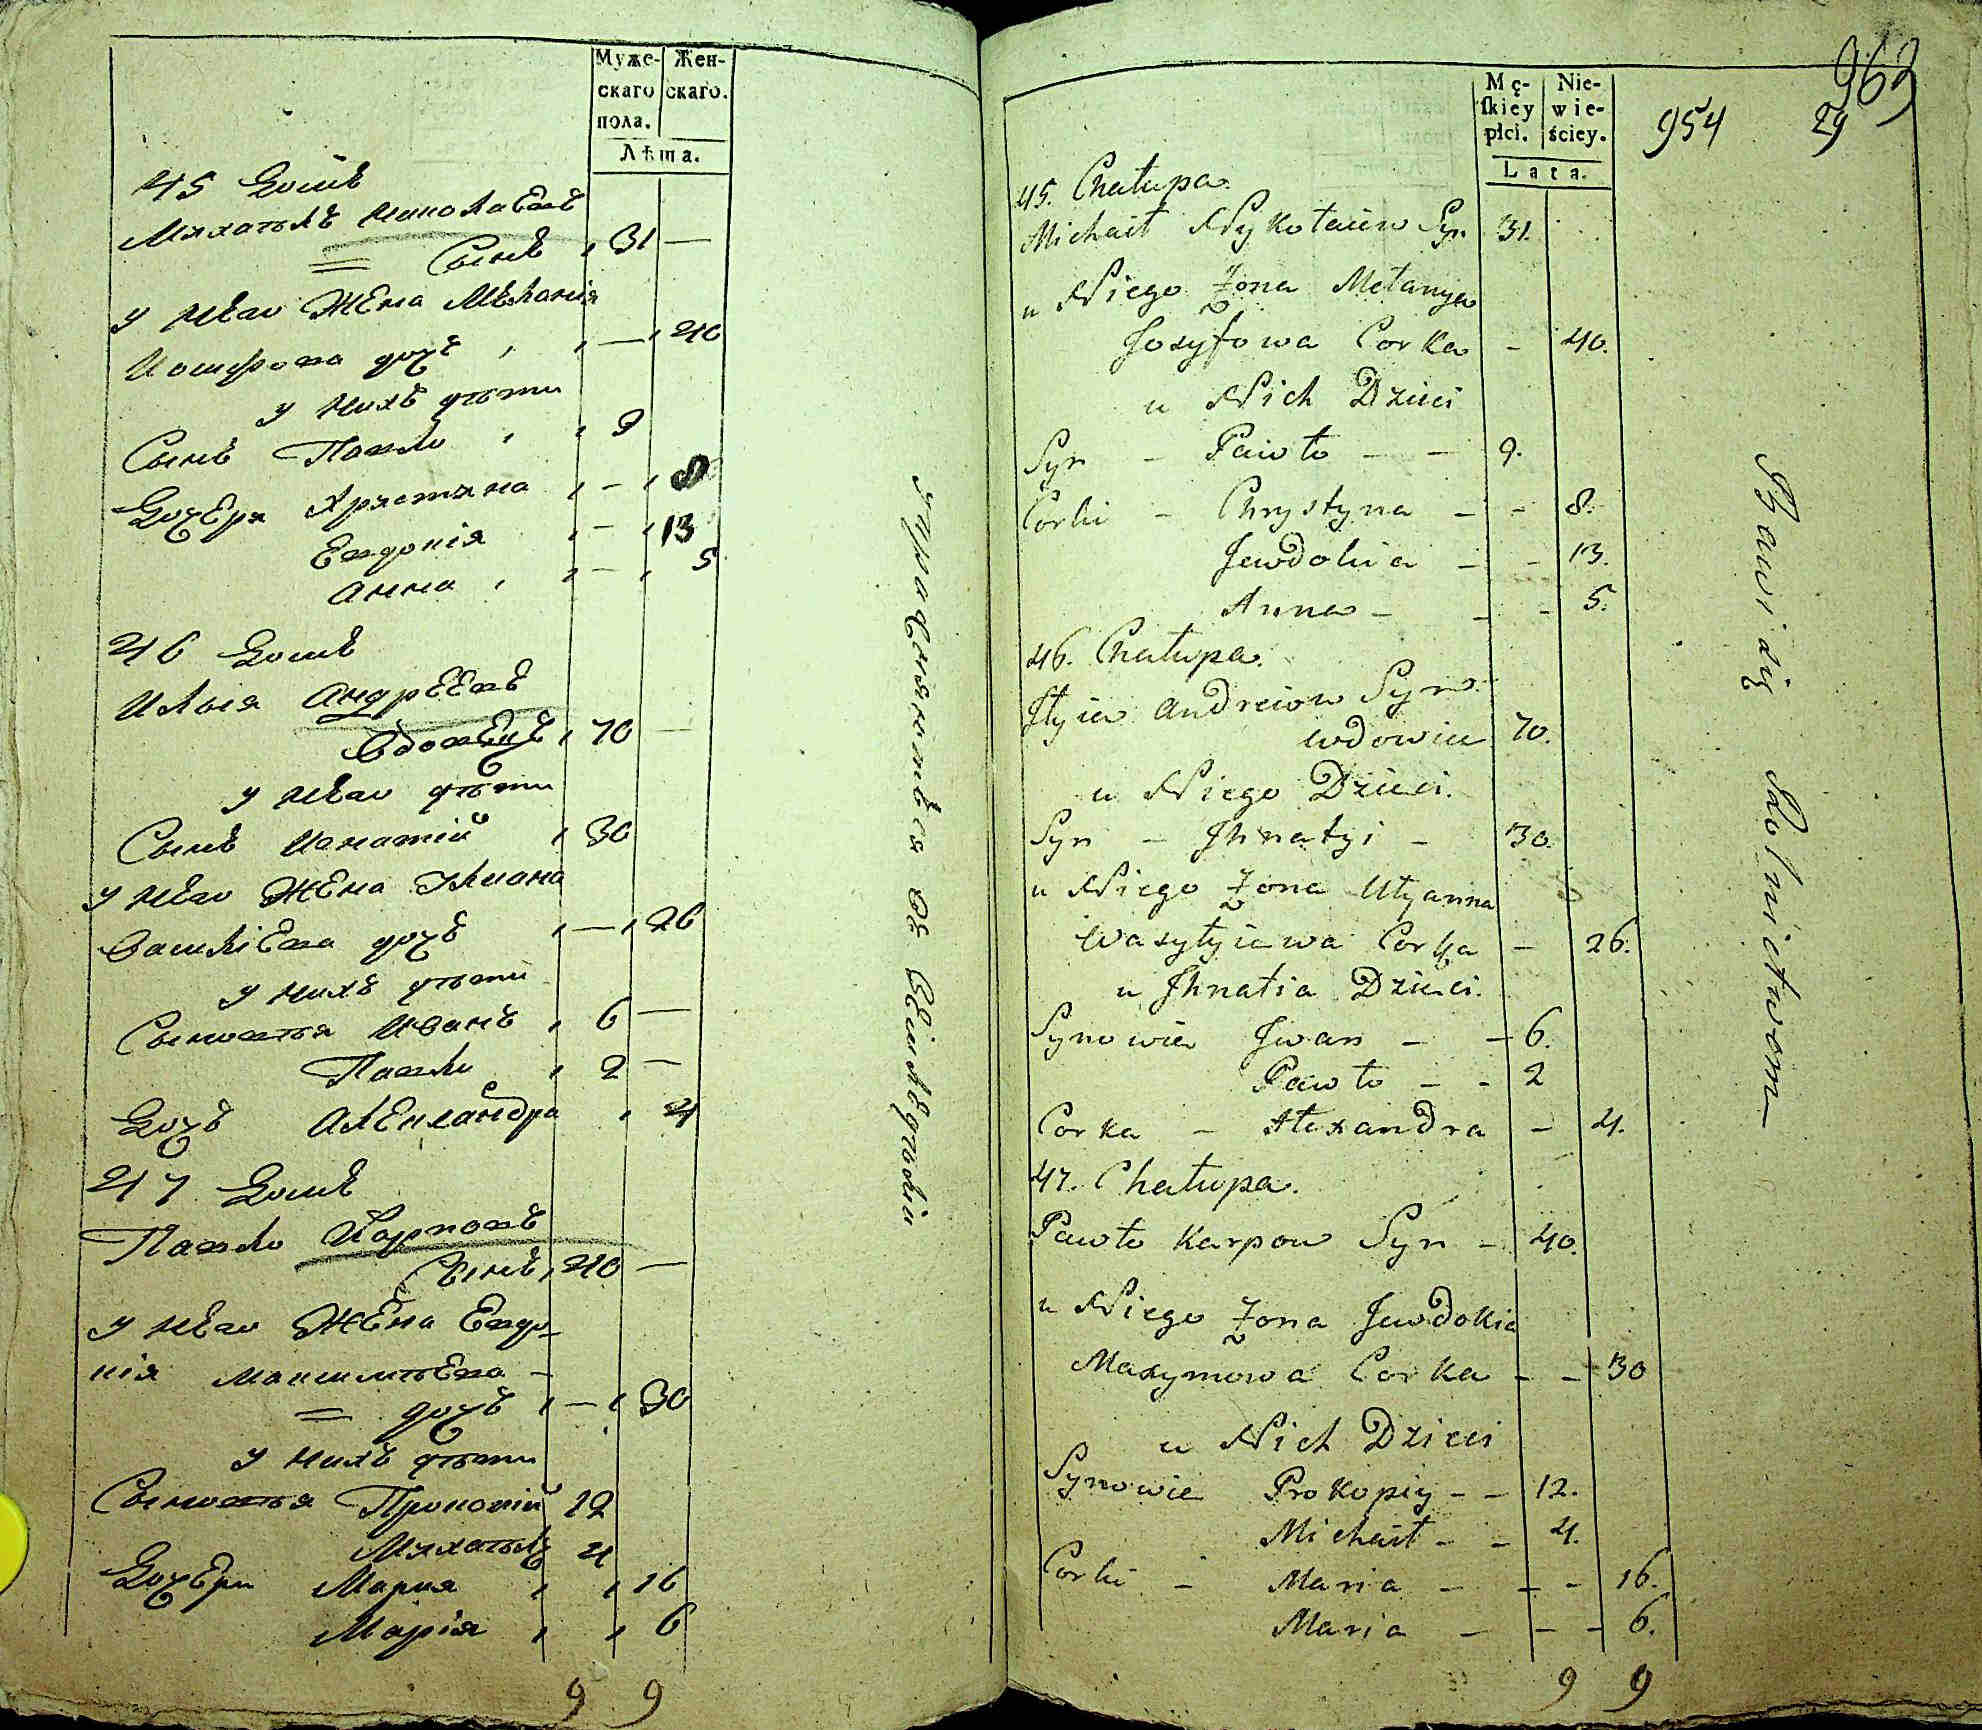 Муже-
скаго
пола.
Жен-
скаго.
Лѣта.
45 Домъ
Михаилъ Николаевъ
Сынъ 31 —
у Него Жена Мѣланія
Иосифова дочь — 40
у Нихъ дѣти
Сынъ Павло 9
Дочери Христина — 8
Евдокія — 13
Анна — 5
46 Домъ
Илья Андреевъ
Вдовецъ 70 —
у Него дѣти
Сынъ Игнатій 30
у Него Жена Улиана
Василіева дочь — 26
у Нихъ дѣти
Сыновья Иванъ 6 —
Павло 2 —
Дочь Александра 4
47 Домъ
Павло Карповъ
Сынъ 40 —
у Него Жена Евдо-
кія Максимѣева —
дочь — 30
у Нихъ дѣти
Сыновья Прокопій 12
Михаилъ 4
Дочери Мария 16
Марія 6
9 9
упражняются въ
963
954 29
Mę-
ſkiey
płci.
Nie-
wie-
ściey.
Lata.
45. Chałupa.
Michaił Nykołaiów Syn 31.
u Niego Żona Mełanya
Josyfowa Corka - 40.
u Nich Dzieci
Syn - Pawło - - 9.
Corki - Chrystyna - - 8.
Jewdokia - - 13.
Anna - - - 5.
46. Chałupa.
Jłyia Andreiow Syn
wdowiec 70.
u Niego Dzieci.
Syn - Jhnatyi - 30.
u Niego Żona Ulyanna
Wasylyiewa Corka - 26.
u Jhnatia Dzieci.
Synowie Jwan - - 6.
Pawło - - 2
Corka - Alexandra - 4.
47. Chałupa.
Pawło Karpow Syn - 40.
u Niego Żona Jewdokia
Maxymowa Corka - - 30
u Nich Dzieci
Synowie Prokopiy - - 12.
Michaił - - 4.
Corki - Maria - - - 16.
Maria - - - 6.
9 9
Bawią się Rolnictwom